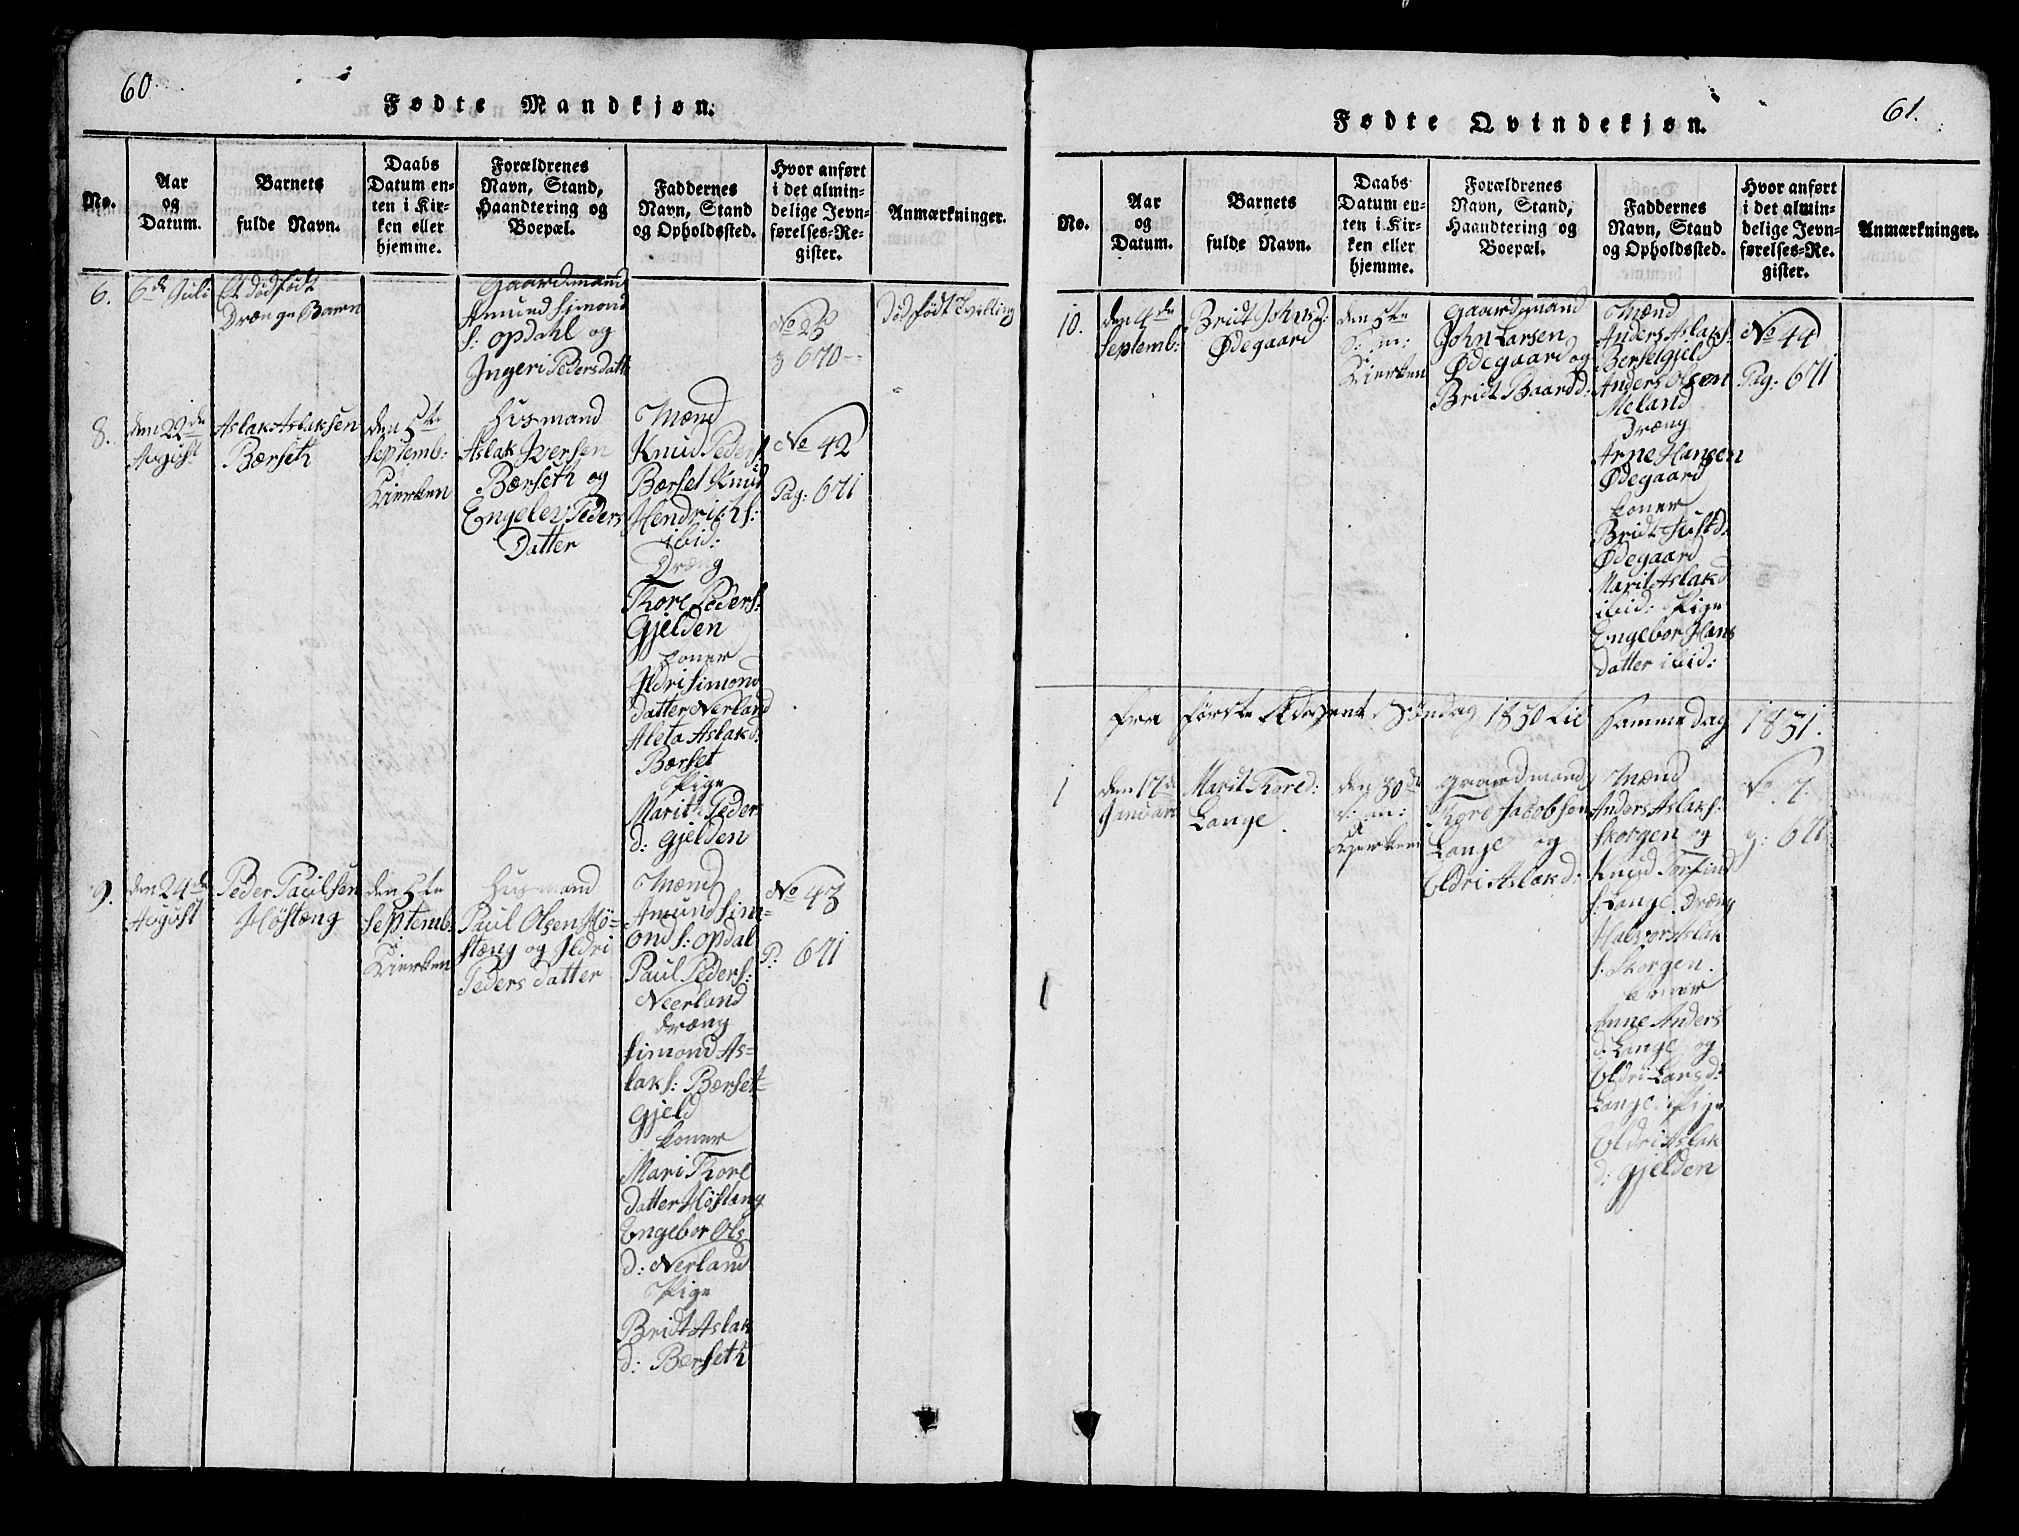 60.
Fødte Mandkjøn.
No.
Aar
og
Datum.
Barnets
fulde Navn.
Daabs
Datum en-
ten i Kir-
ken eller
hjemme.
Forældrenes
Navn, Stand,
Haandtering og
Boepæl.
Faddernes
Navn, Stand
og Opholdssted.
Hvor anført
i det almin-
delige Jevn-
førelses-Re-
gister.
Anmærkninger.
6.
6de Juli
Et dødfødt
Drænge Barn
Gaardmand
Amund Simond
s: Opdahl og
Ingeri Pedersdatt
No 25
670
Dødfødt Tvilling
8.
den 22de
August
Aslak Aslaksen
Bærseth
den 5te
Septemb:
Kierken
Husmand
Aslak Iversen
Bærseth og
Engelev Peders
Datter
Mænd
Knud Peders:
Bærset Knud
Hendrichs:
ibid:
Dræng
Tore Peders:
Gjelden
koner
Ildri Simond
datter Nerland
Aleta Aslakd:
Bærset
Pige
Marith Peder
d: Gjelden
No 42
Pag: 671
9.
den 24de
August
Peder Paulsen
Høstæng
den 5te
Septemb:
Kierken
Husmand
Paul Olsen Hø-
stæng og Ildri
Peders datter
Mænd
Amund Sim-
ond s: Opdal
Paul Peders:
Neerland
dræng
Simond As-
laks: Bærset-
Gjeld
koner
Mari Tore
datter Høstæng
Engebor Ols
d: Nerland
Pige
Bridt Aslak
d: Bærseth
No 43
P: 671
61.
Fødte Qvindekjøn.
No.
Aar
og
Datum.
Barnets
fulde Navn.
Daabs
Datum en-
ten i Kir-
ken eller
hjemme.
Forældrenes
Navn, Stand,
Haandtering og
Boepæl.
Faddernes
Navn, Stand
og Opholdssted.
Hvor anført
i det almin-
delige Jevn-
førelses-Re-
gister.
Anmærkninger.
10.
den 4de
Septemb:
Bridt Johnsd:
Ødegaard
den 5te
s: m:
Kierken
Gaardmand
John Larsen
Ødegaard og
Bridt Baardd:
Mænd
Anders Aslaks:
Berselgjeld
Anders Olsen
Meland
Dræng
Arne Hansen
Ødegaard
koner
Bridt Justd:
Ødegaard
Marit Aslakd
ibid: Pige
Engebor Hans
datter ibid:
No 44
Pag: 671
fra første Adspent Søndag 1830 til samme dag 1831.
1
den 17de
Januari
Marit Tored:
Lange
den 30de
s: m:
Kjerken
Gaardmand
Tore Jacobsen
Lange og
Eldri Aslakd:
Mænd
Anders Aslaks:
Skorgen og
Knud Torfind
s: Lange. Dræng
Halvor Aslak
s: Skorgen.
koner
Anne Anders
d: Lange og
Eldri Larsd:
Lange. Pige
Eldri Aslak
d: Gjelden
No 7.
g: 671